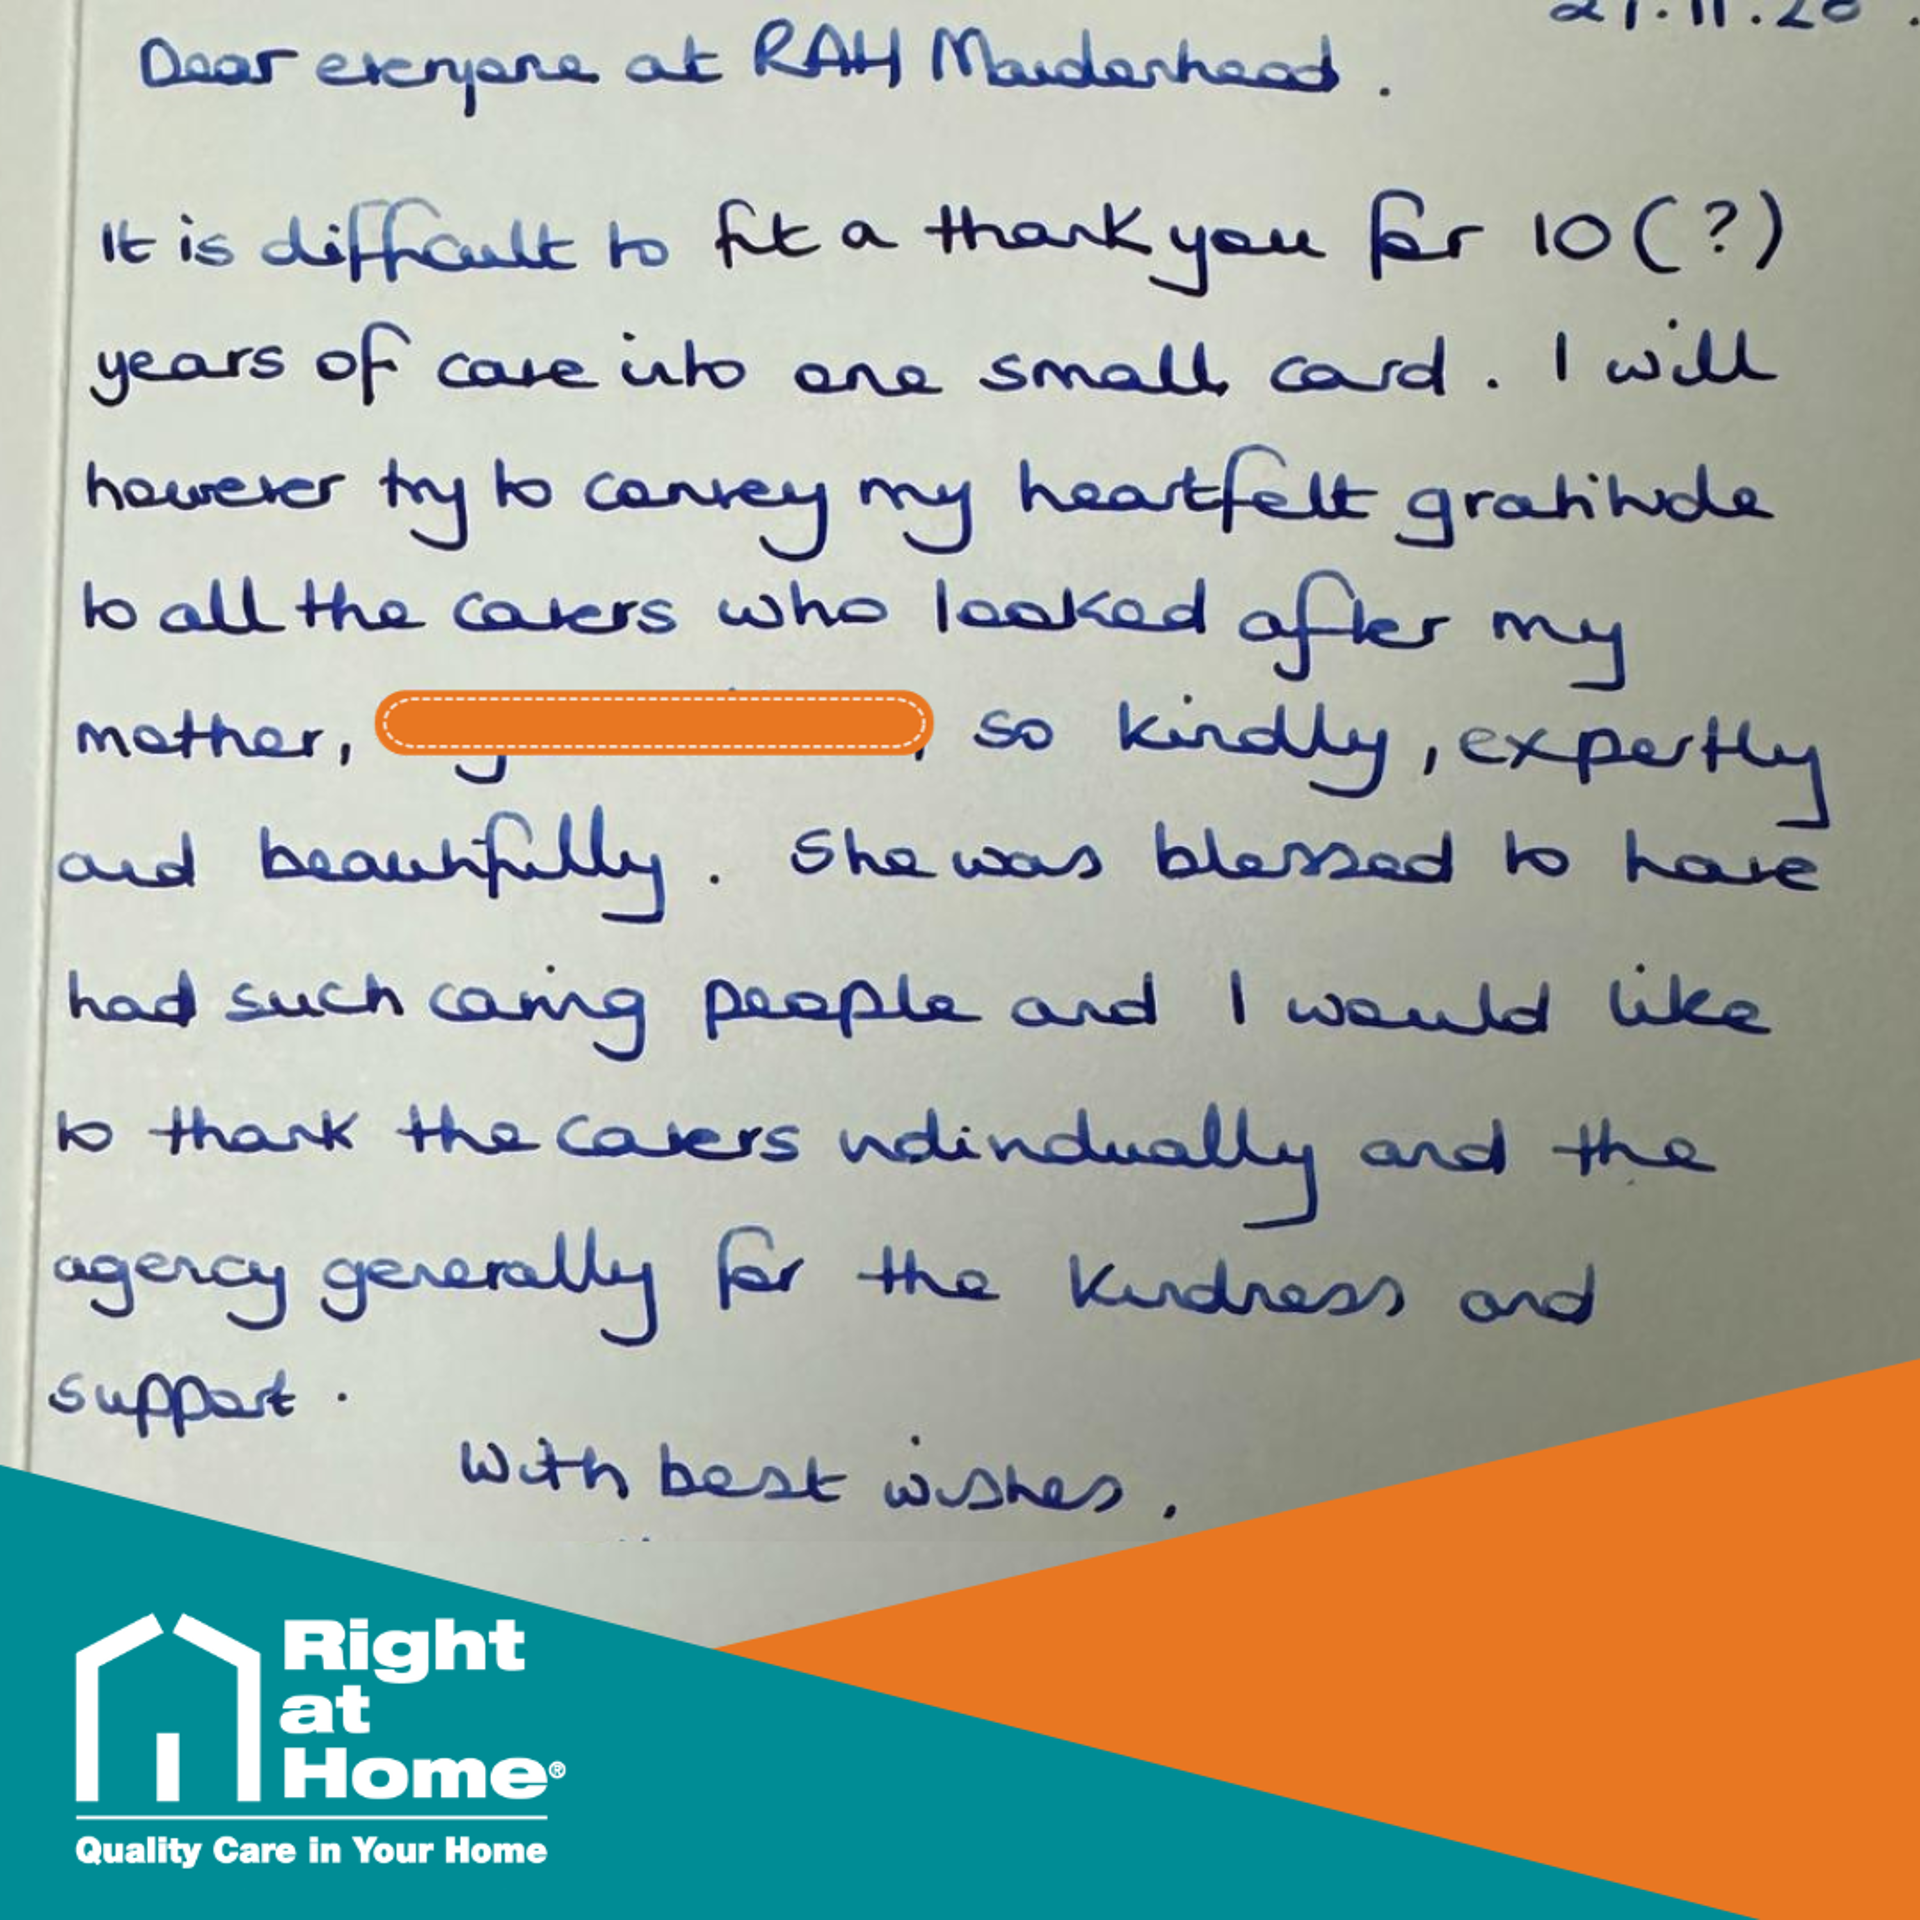 Dear everyone at RAH Maidenhead.
It is difficult to fit a thank you for 10 (?)
years of care into one small card. I will
however try to convey my heartfelt gratitude
to all the carers who looked after my
mother, , so kindly, expertly
and beautifully. She was blessed to have
had such caring people and I would like
to thank the carers individually and the
agency generally for the kindness and
support.
With best wishes,
Right
at
Home®
Quality Care in Your Home